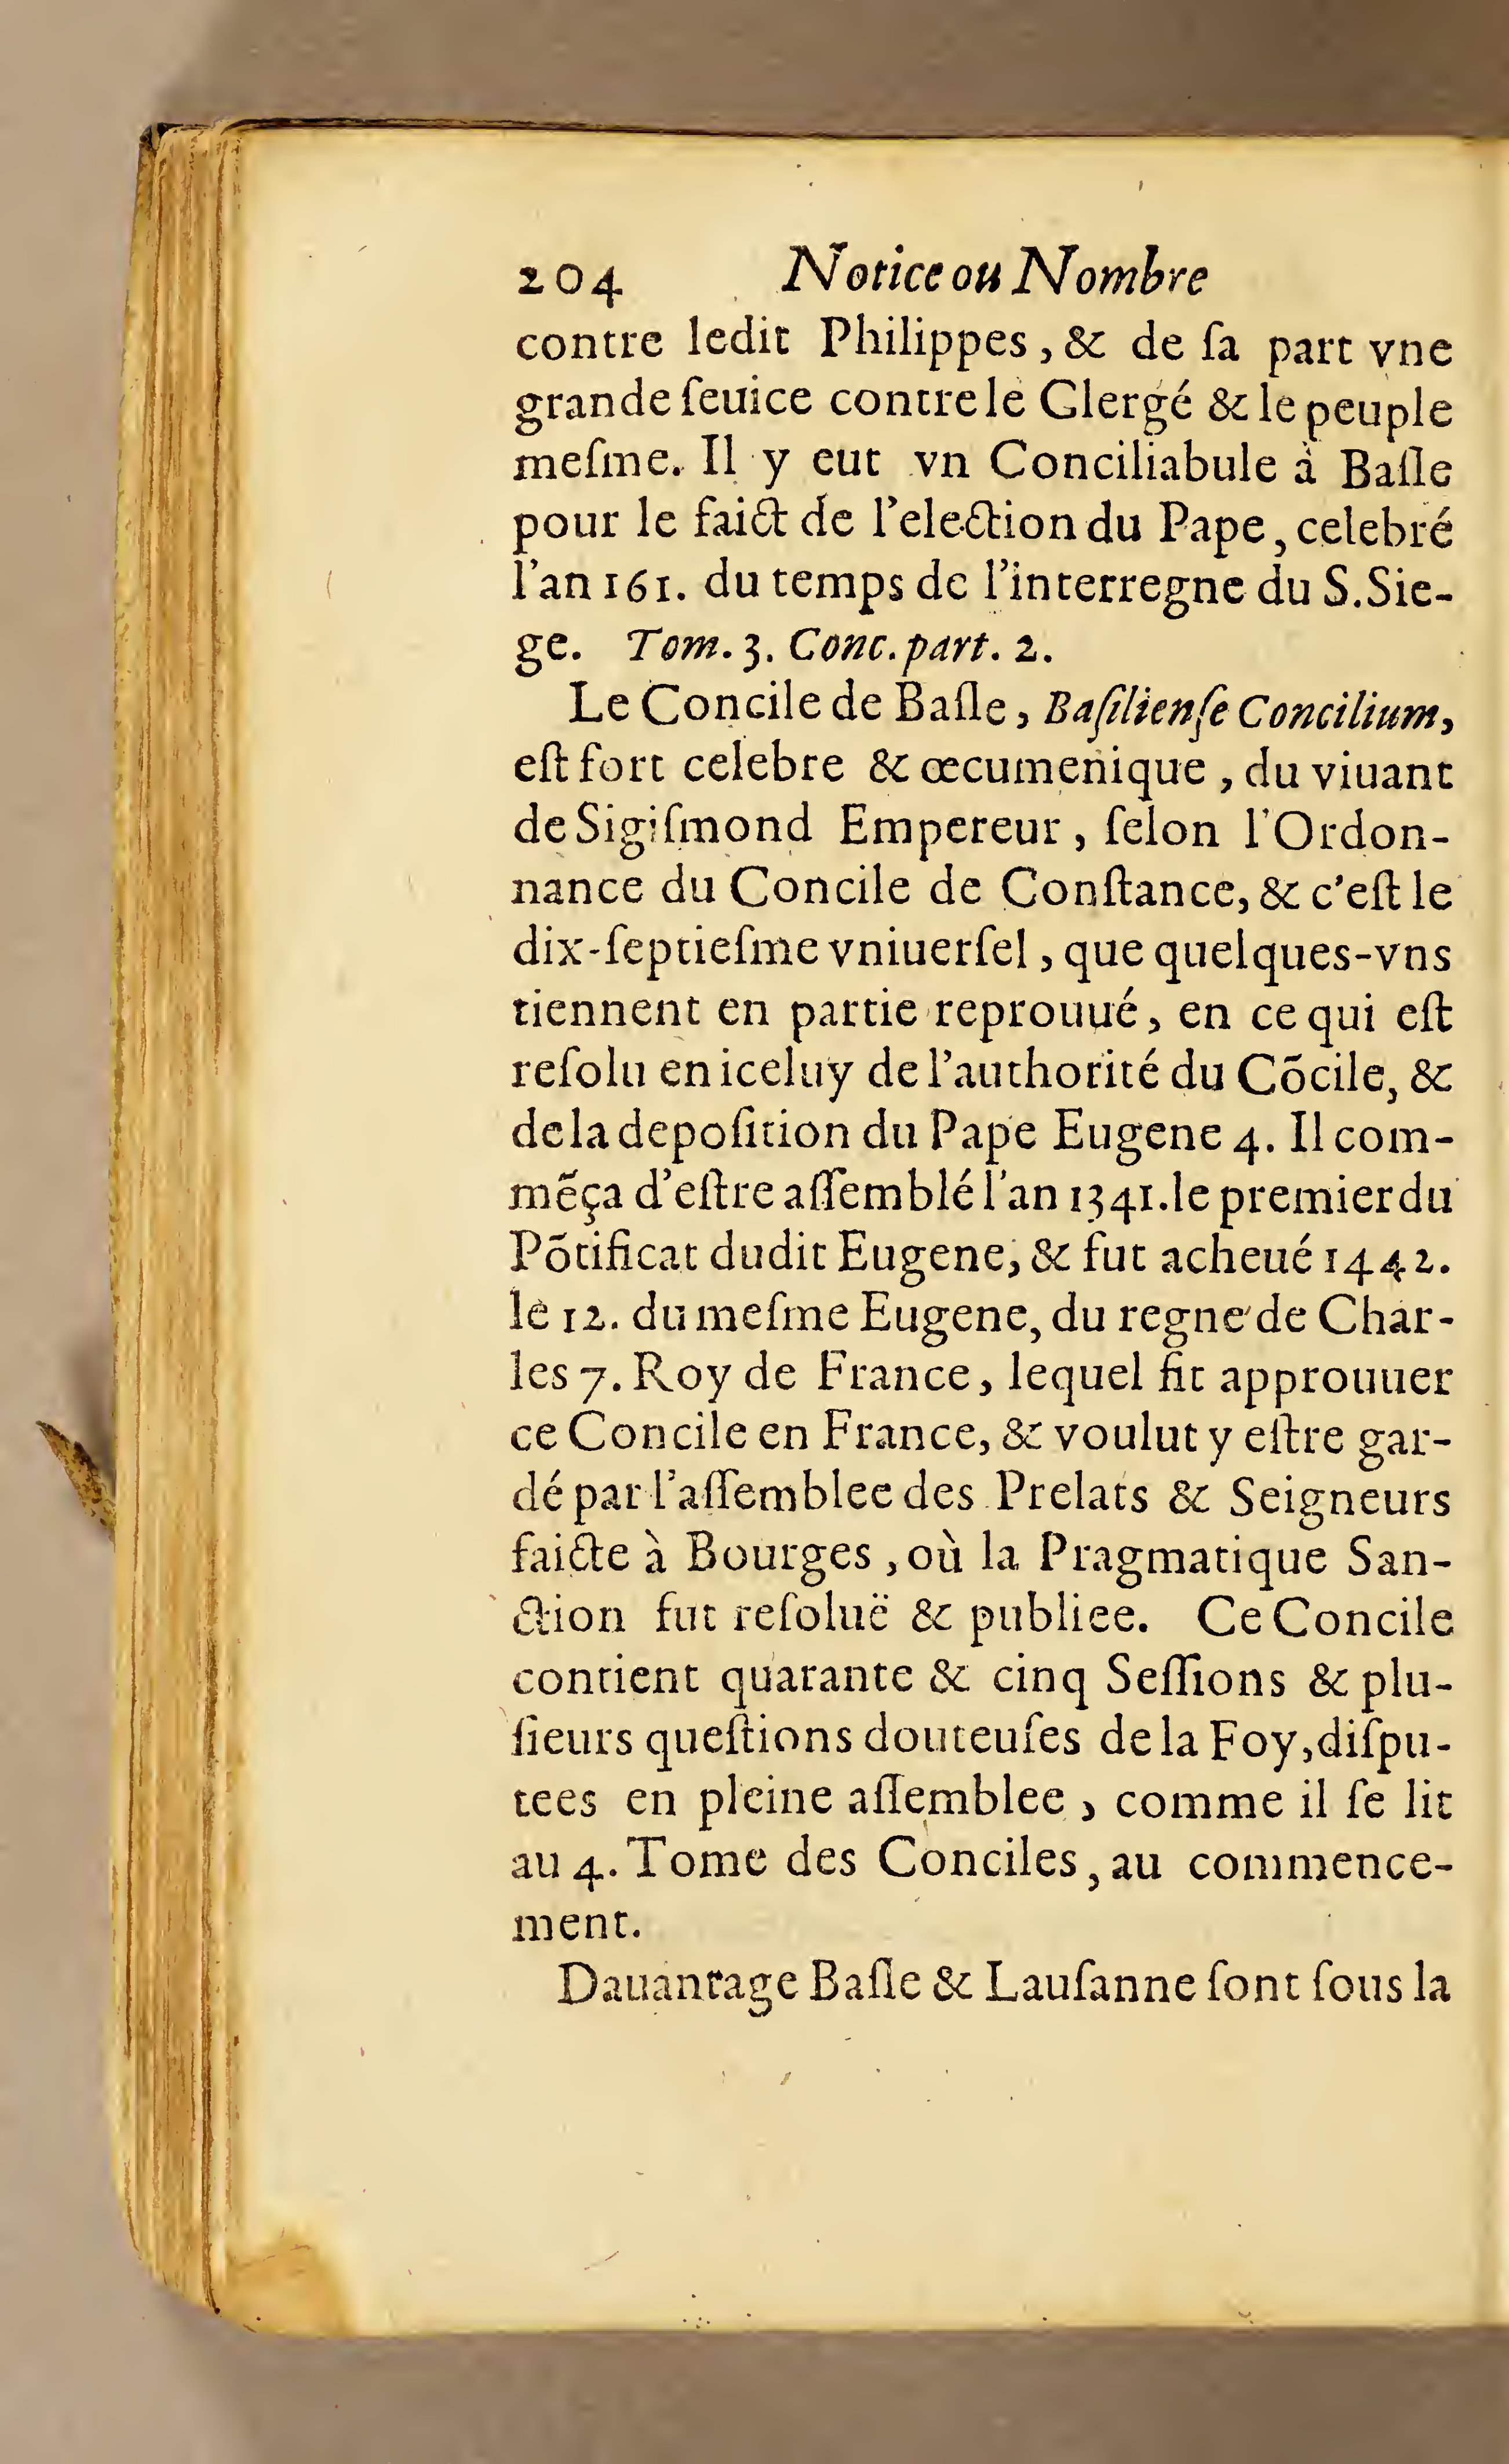 204 Notice ou Nombre
contre ledit Philippes, & de ſa part vne
grande ſeuice contre le Clergé & le peuple
meſme. Il y eut vn Conciliabule à Baſle
pour le faict de l'election du Pape, celebré
l'an 161. du temps de l'interregne du S. Sie-
ge. Tom. 3. Conc. part. 2.
Le Concile de Baſle, Baſilienſe Concilium,
eſt fort celebre & œcumenique, du viuant
de Sigiſmond Empereur, ſelon l'Ordon-
nance du Concile de Conſtance, & c'eſt le
dix-ſeptieſme vniuerſel, que quelques-vns
tiennent en partie reprouué, en ce qui eſt
reſolu en iceluy de l'authorité du Cõcile, &
de la depoſition du Pape Eugene 4. Il com-
mẽça d'eſtre aſſemblé l'an 1341. le premier du
Põtificat dudit Eugene, & fut acheué 1442.
le 12. du meſme Eugene, du regne de Char-
les 7. Roy de France, lequel fit approuuer
ce Concile en France, & voulut y eſtre gar-
dé par l'aſſemblee des Prelats & Seigneurs
faicte à Bourges, où la Pragmatique San-
ction fut reſoluë & publiee. Ce Concile
contient quarante & cinq Seſſions & plu-
ſieurs queſtions douteuſes de la Foy, diſpu-
tees en pleine aſſemblee, comme il ſe lit
au 4. Tome des Conciles, au commence-
ment.
Dauantage Baſle & Lauſanne ſont ſous la